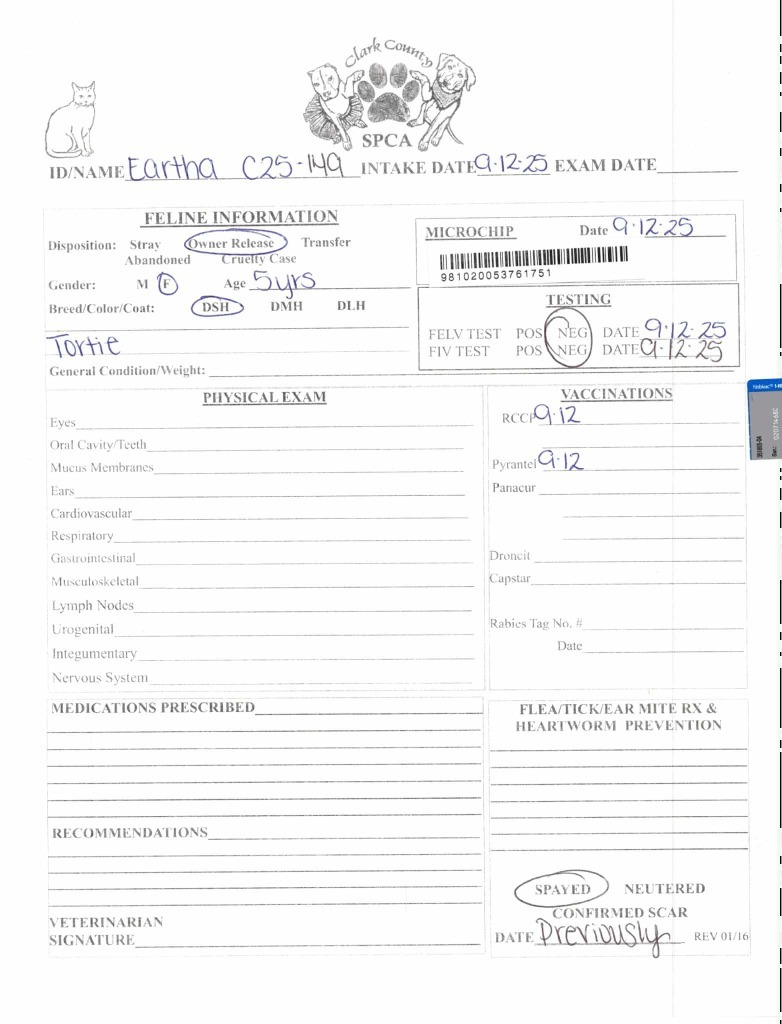 Clark County
SPCA
ID/NAME Eartha C25-149 INTAKE DATE 9-12-25 EXAM DATE
FELINE INFORMATION
Disposition: Stray Owner Release Transfer
Abandoned Cruelty Case
Gender: M F Age 5yrs
Breed/Color/Coat: DSH DMH DLH
Tortie
General Condition/Weight:
MICROCHIP Date 9-12-25
981020053761751
TESTING
FELV TEST POS NEG DATE 9-12-25
FIV TEST POS NEG DATE 9-12-25
PHYSICAL EXAM
Eyes
Oral Cavity/Teeth
Mucus Membranes
Ears
Cardiovascular
Respiratory
Gastrointestinal
Musculoskeletal
Lymph Nodes
Urogenital
Integumentary
Nervous System
VACCINATIONS
RCCP 9-12
Pyrantel 9-12
Panacur
Droncit
Capstar
Rabies Tag No. #
Date
MEDICATIONS PRESCRIBED
RECOMMENDATIONS
VETERINARIAN
SIGNATURE
FLEA/TICK/EAR MITE RX &
HEARTWORM PREVENTION
SPAYED NEUTERED
CONFIRMED SCAR
DATE Previously REV 01/16